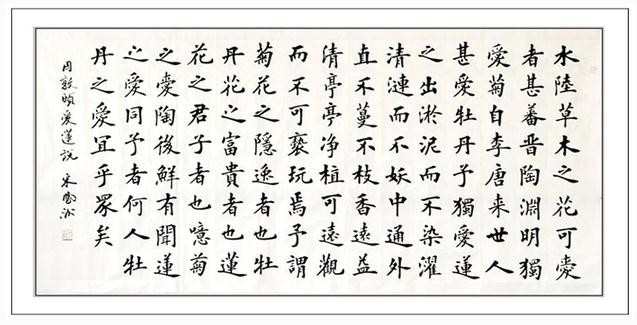 水陸草木之花可愛
者甚蕃晋陶淵明獨
愛菊自李唐来世人
甚愛牡丹予獨愛蓮
之出淤泥而不染濯
清漣而不妖中通外
直不蔓不枝香遠益
清亭亭净植可遠觀
而不可褻玩焉予謂
菊花之隱逸者也牡
丹花之富貴者也蓮
花之君子者也噫菊
之愛陶後鮮有聞蓮
之愛同予者何人牡
丹之愛宜乎眾矣
周敦頤爱蓮説